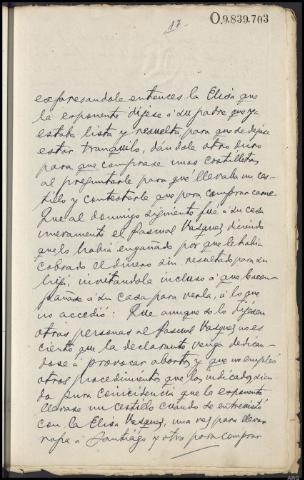 17
O,9.839.703
expresandole entonces la Elisa que
la exponente dijese a su padre que ya
estaba lista y resuelta, para que se dejase
estar tranquilo, dándole otro duro
para que comprase unas costillas,
al preguntarle para qué llevaba un ces-
tillo y contestarle que para comprar carne.
Que al domingo siguiente fué a su casa
nuevamente el Pascual Vazquez diciendo
que lo había engañado por que le había
cobrado el dinero sin resultado para su
hija, invitandole incluso a que la acom-
pañase a su casa para verla, a lo que
no accedió: Que aunque se lo dijesen
otras personas al Pascual Vazquez no es
cierto que la declarante venga dedican-
dose a provocar abortos y que no empleó
otros procedimientos que los indicados, sien-
do pura coincidencia que la exponente
llevase un cestillo cuando se entrevistó
con la Elisa Vazquez, una vez para llevar
ropa a Santiago y otra para comprar